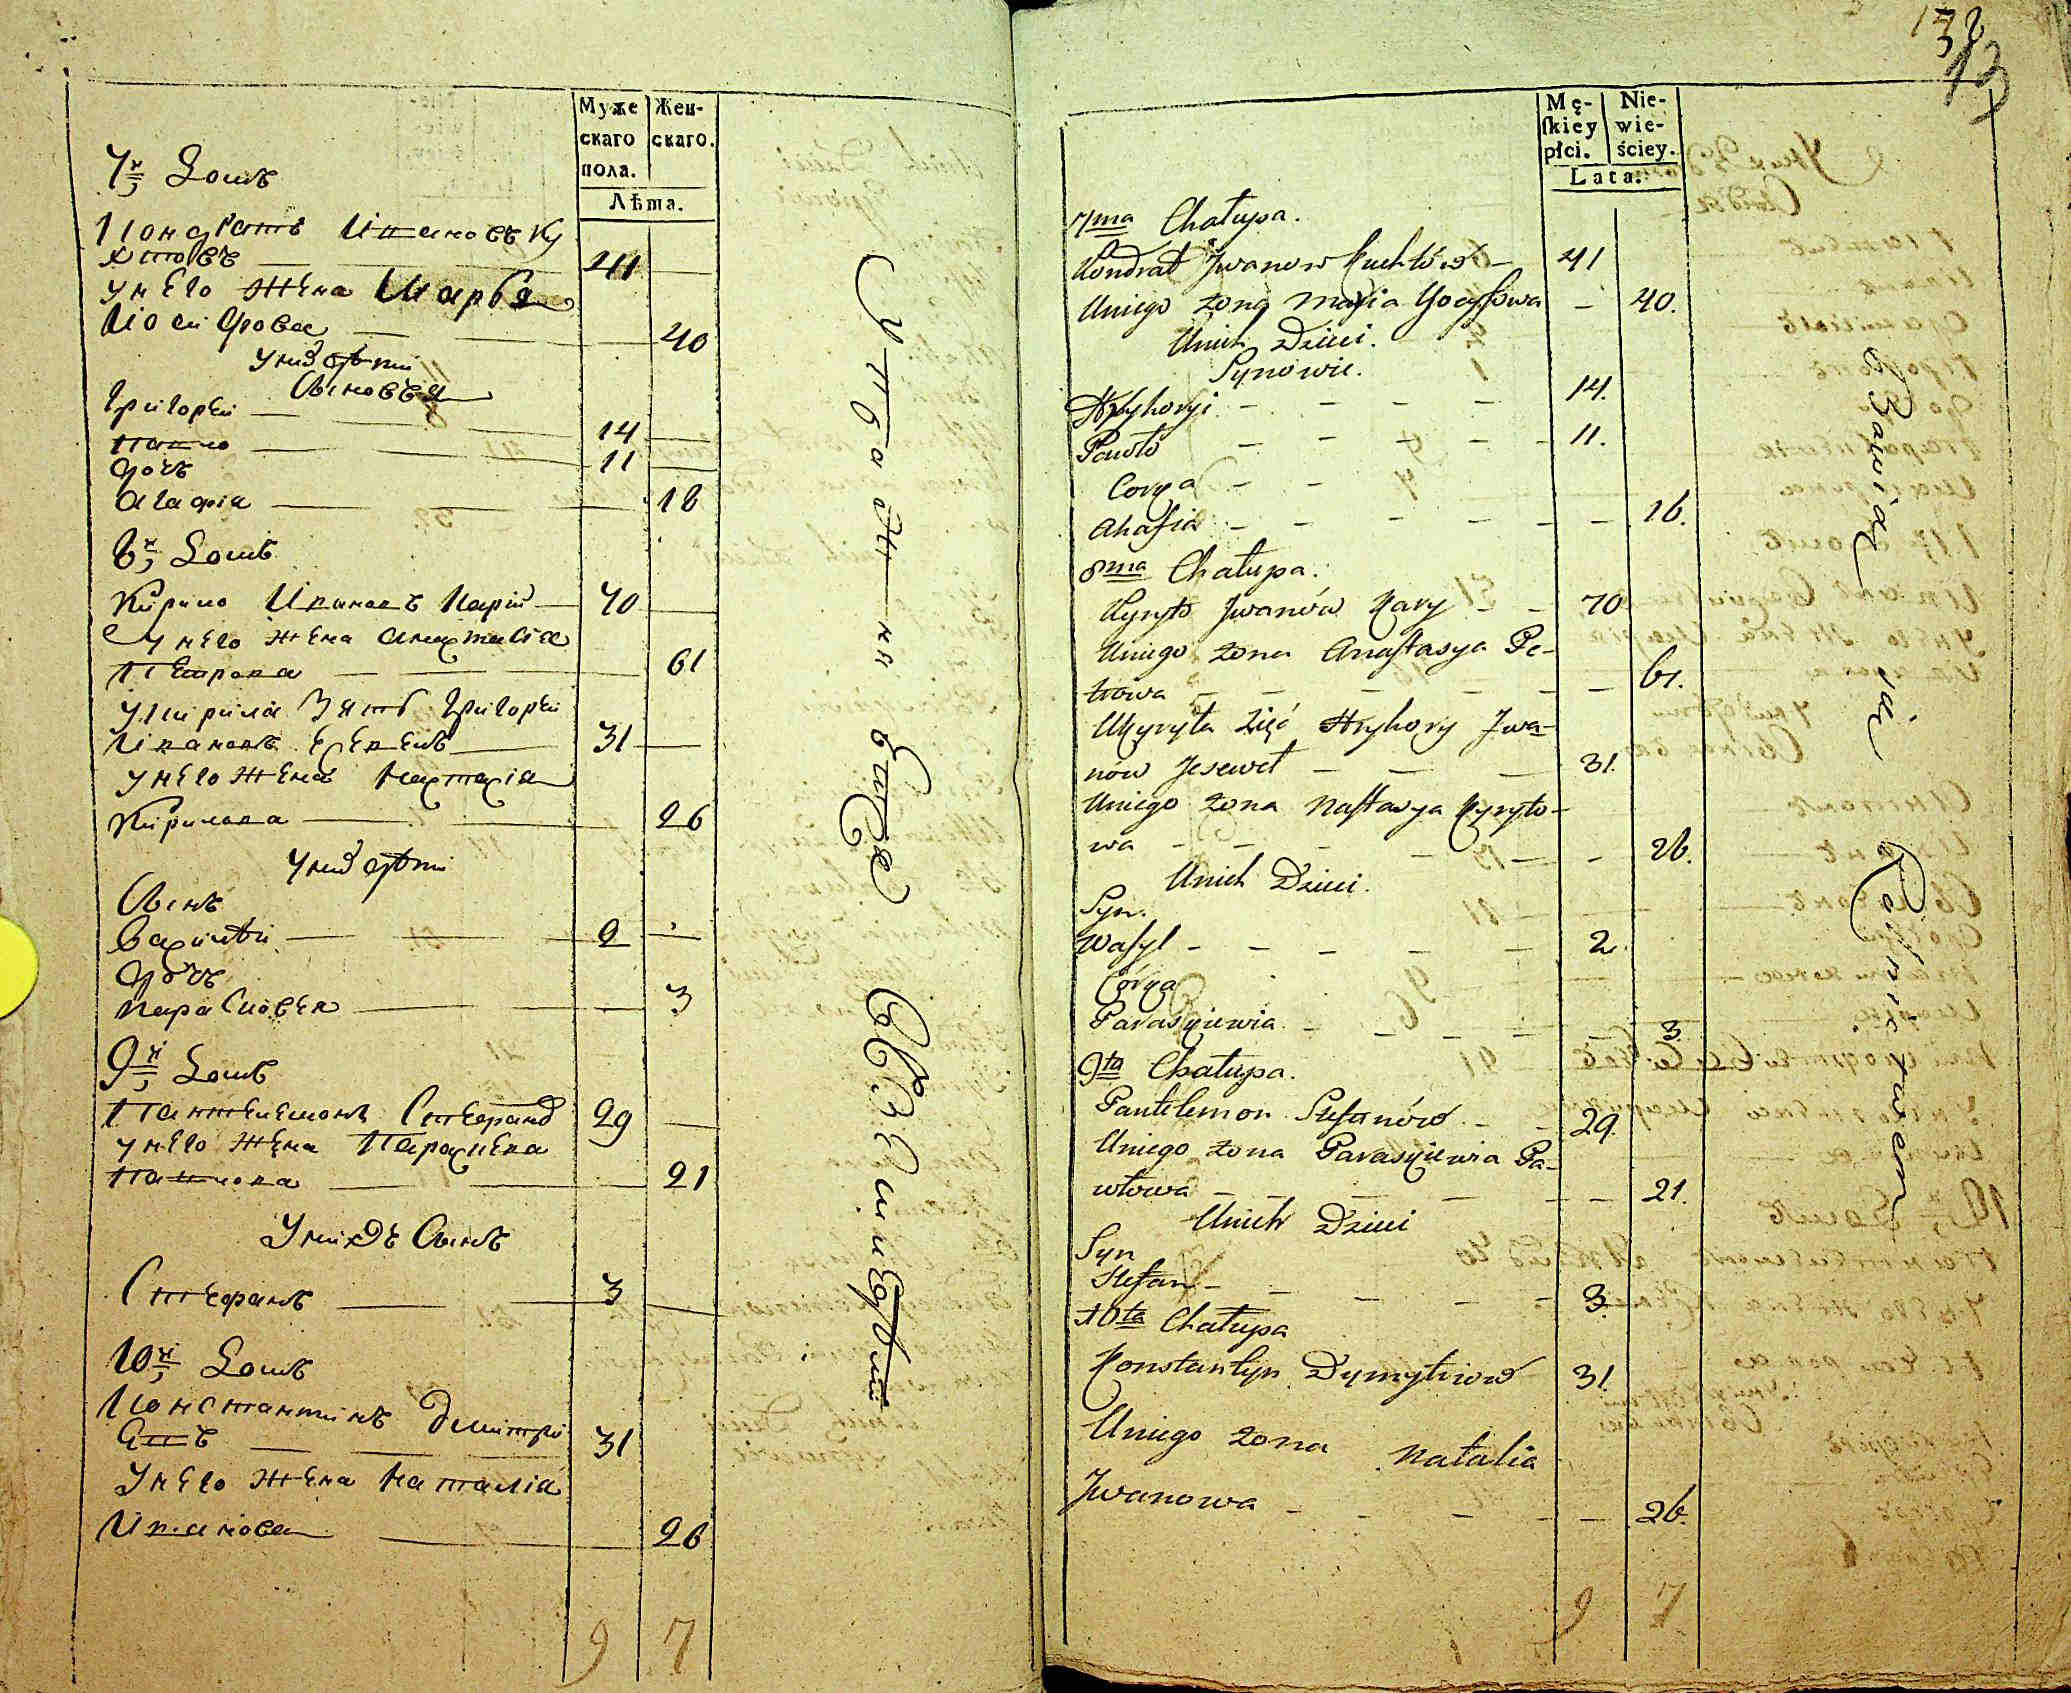 Муже
скаго
пола.
Жен-
скаго.
Лѣта.
7й Домъ
Кондратъ Ивановъ Ку
хтовъ — 41
у него жена Марья
Иосифова — 40
у них дѣти
Сыновья
Григорей — 14
Павло — 11
дочь
Агафія — 18
8й Домъ
Кирило Ивановъ Карій — 70
у него жена Анастасіа
Петрова — 61
у Кирила зять Григорей
Ивановъ — 31
у него жена Настасіа
Кирилова — 26
у них дѣти
Сынъ
Василей — 2
дочь
Парасковея — 3
9й Домъ
Пантелемонъ Стефанов 29
у него жена Параскева
Павлова — 21
у нихъ Сынъ
Стефанъ — 3
10й Домъ
Константинъ Дмитрі
евъ — 31
у него жена Наталіа
Иванова — 26
9 7
132
13
Mę-
ſkiey
płci.
Nie-
wie-
ściey.
Lata.
7ma Chałupa.
Kondrat Jwanow Kuchtów — 41
Uniego żona Marja Yozefowa — 40.
Unich Dzieci.
Synowie.
Hryhoryi - - - - 14.
Pawło - - - - 11.
Corya - -
Ahafia - - - - - - 18.
8ma Chałupa.
Kyryło Jwanów Kary - - 70
Uniego żona Anastasya Pe-
trowa - - - - - - 61.
Ukyryła zięć Hryhory Jwa-
nów Jesewet — — — 31.
Uniego żona Nastasya Kyryło-
wa - - - - - - 26.
Unich Dzieci.
Syn.
Wasyl - - - - - 2.
Córya
Paraskiewia - - - - - 3.
9ta Chałupa.
Pantelemon Stefanów - - 29.
Uniego żona Paraskiewia Pa-
włowa - - - - - - 21.
Unich Dzieci
Syn
Stefan - - - - - 3.
10ta Chałupa
Konstantyn Dymytriow 31.
Uniego żona Natalia
Jwanowa - - - - - 26.
9 7